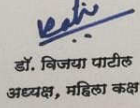 डॉ. विजया पाटील
अध्यक्ष, महिला कक्ष